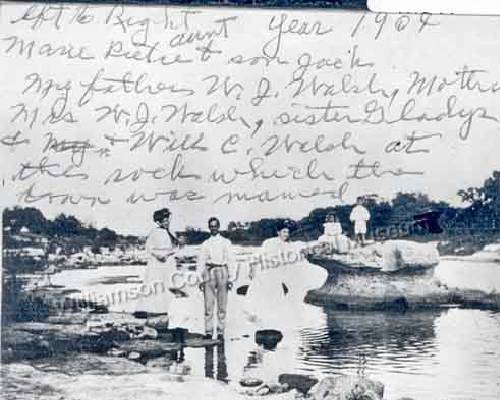 left to Right aunt Year 1904
Marie Pietre & son Jack
My father W. J. Walsh, Mother
Mrs W. J. Walsh, sister Gladys
& my & Will C. Walsh at
this rock which the
town was named
Williamson County Historical Museum